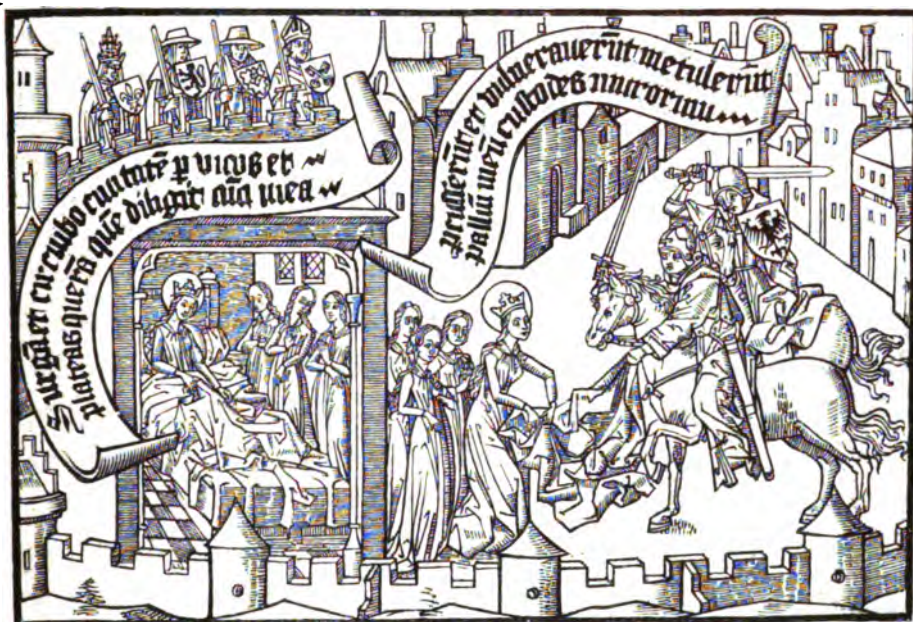 Surgā et circuibo cuitatē ꝑ vicus et
plateas querā quē diligit aīa mea
Percusserūt et vulneraverūt me tulerūt
palliū meū custodes murorum